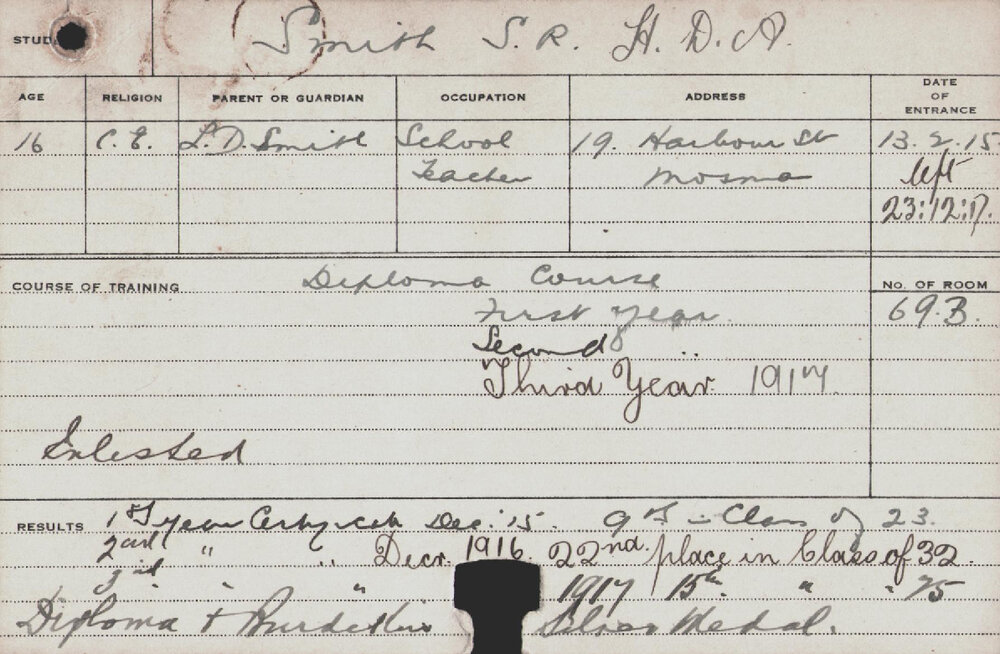 STUD Smith S. R. H. D. A.
AGE RELIGION PARENT OR GUARDIAN OCCUPATION ADDRESS DATE OF ENTRANCE
16 C. E. L. D. Smith School 19. Harbour St 13.2.15
Teacher Mosma left
23:12:17.
COURSE OF TRAINING Diploma Course No. OF ROOM
First Year 69.B.
Second
Third Year 1917
Enlisted
RESULTS 1st year Dec. '15. 9th in Class of 23.
2nd " " Decr. 1916. 22nd. place in Class of 32.
3rd " " 1917 15th " "
Diploma + Silver Medal.